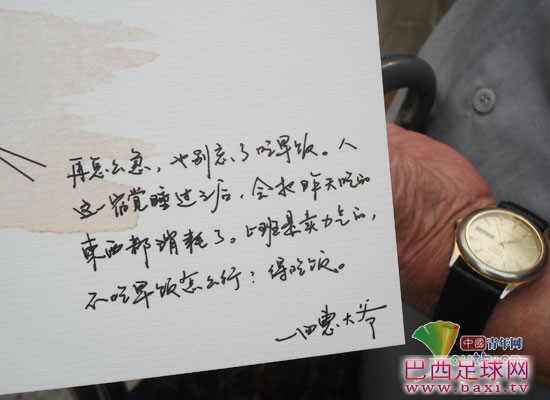 再怎么急，也别忘了吃早饭。人
这一宿觉睡过之后，会把昨天吃的
東西都消耗了。上班是卖力气的，
不吃早饭怎么行？得吃饭。
一田惠大爷
中國青年网
youth.cn
巴西足球网
www.baxi.tv